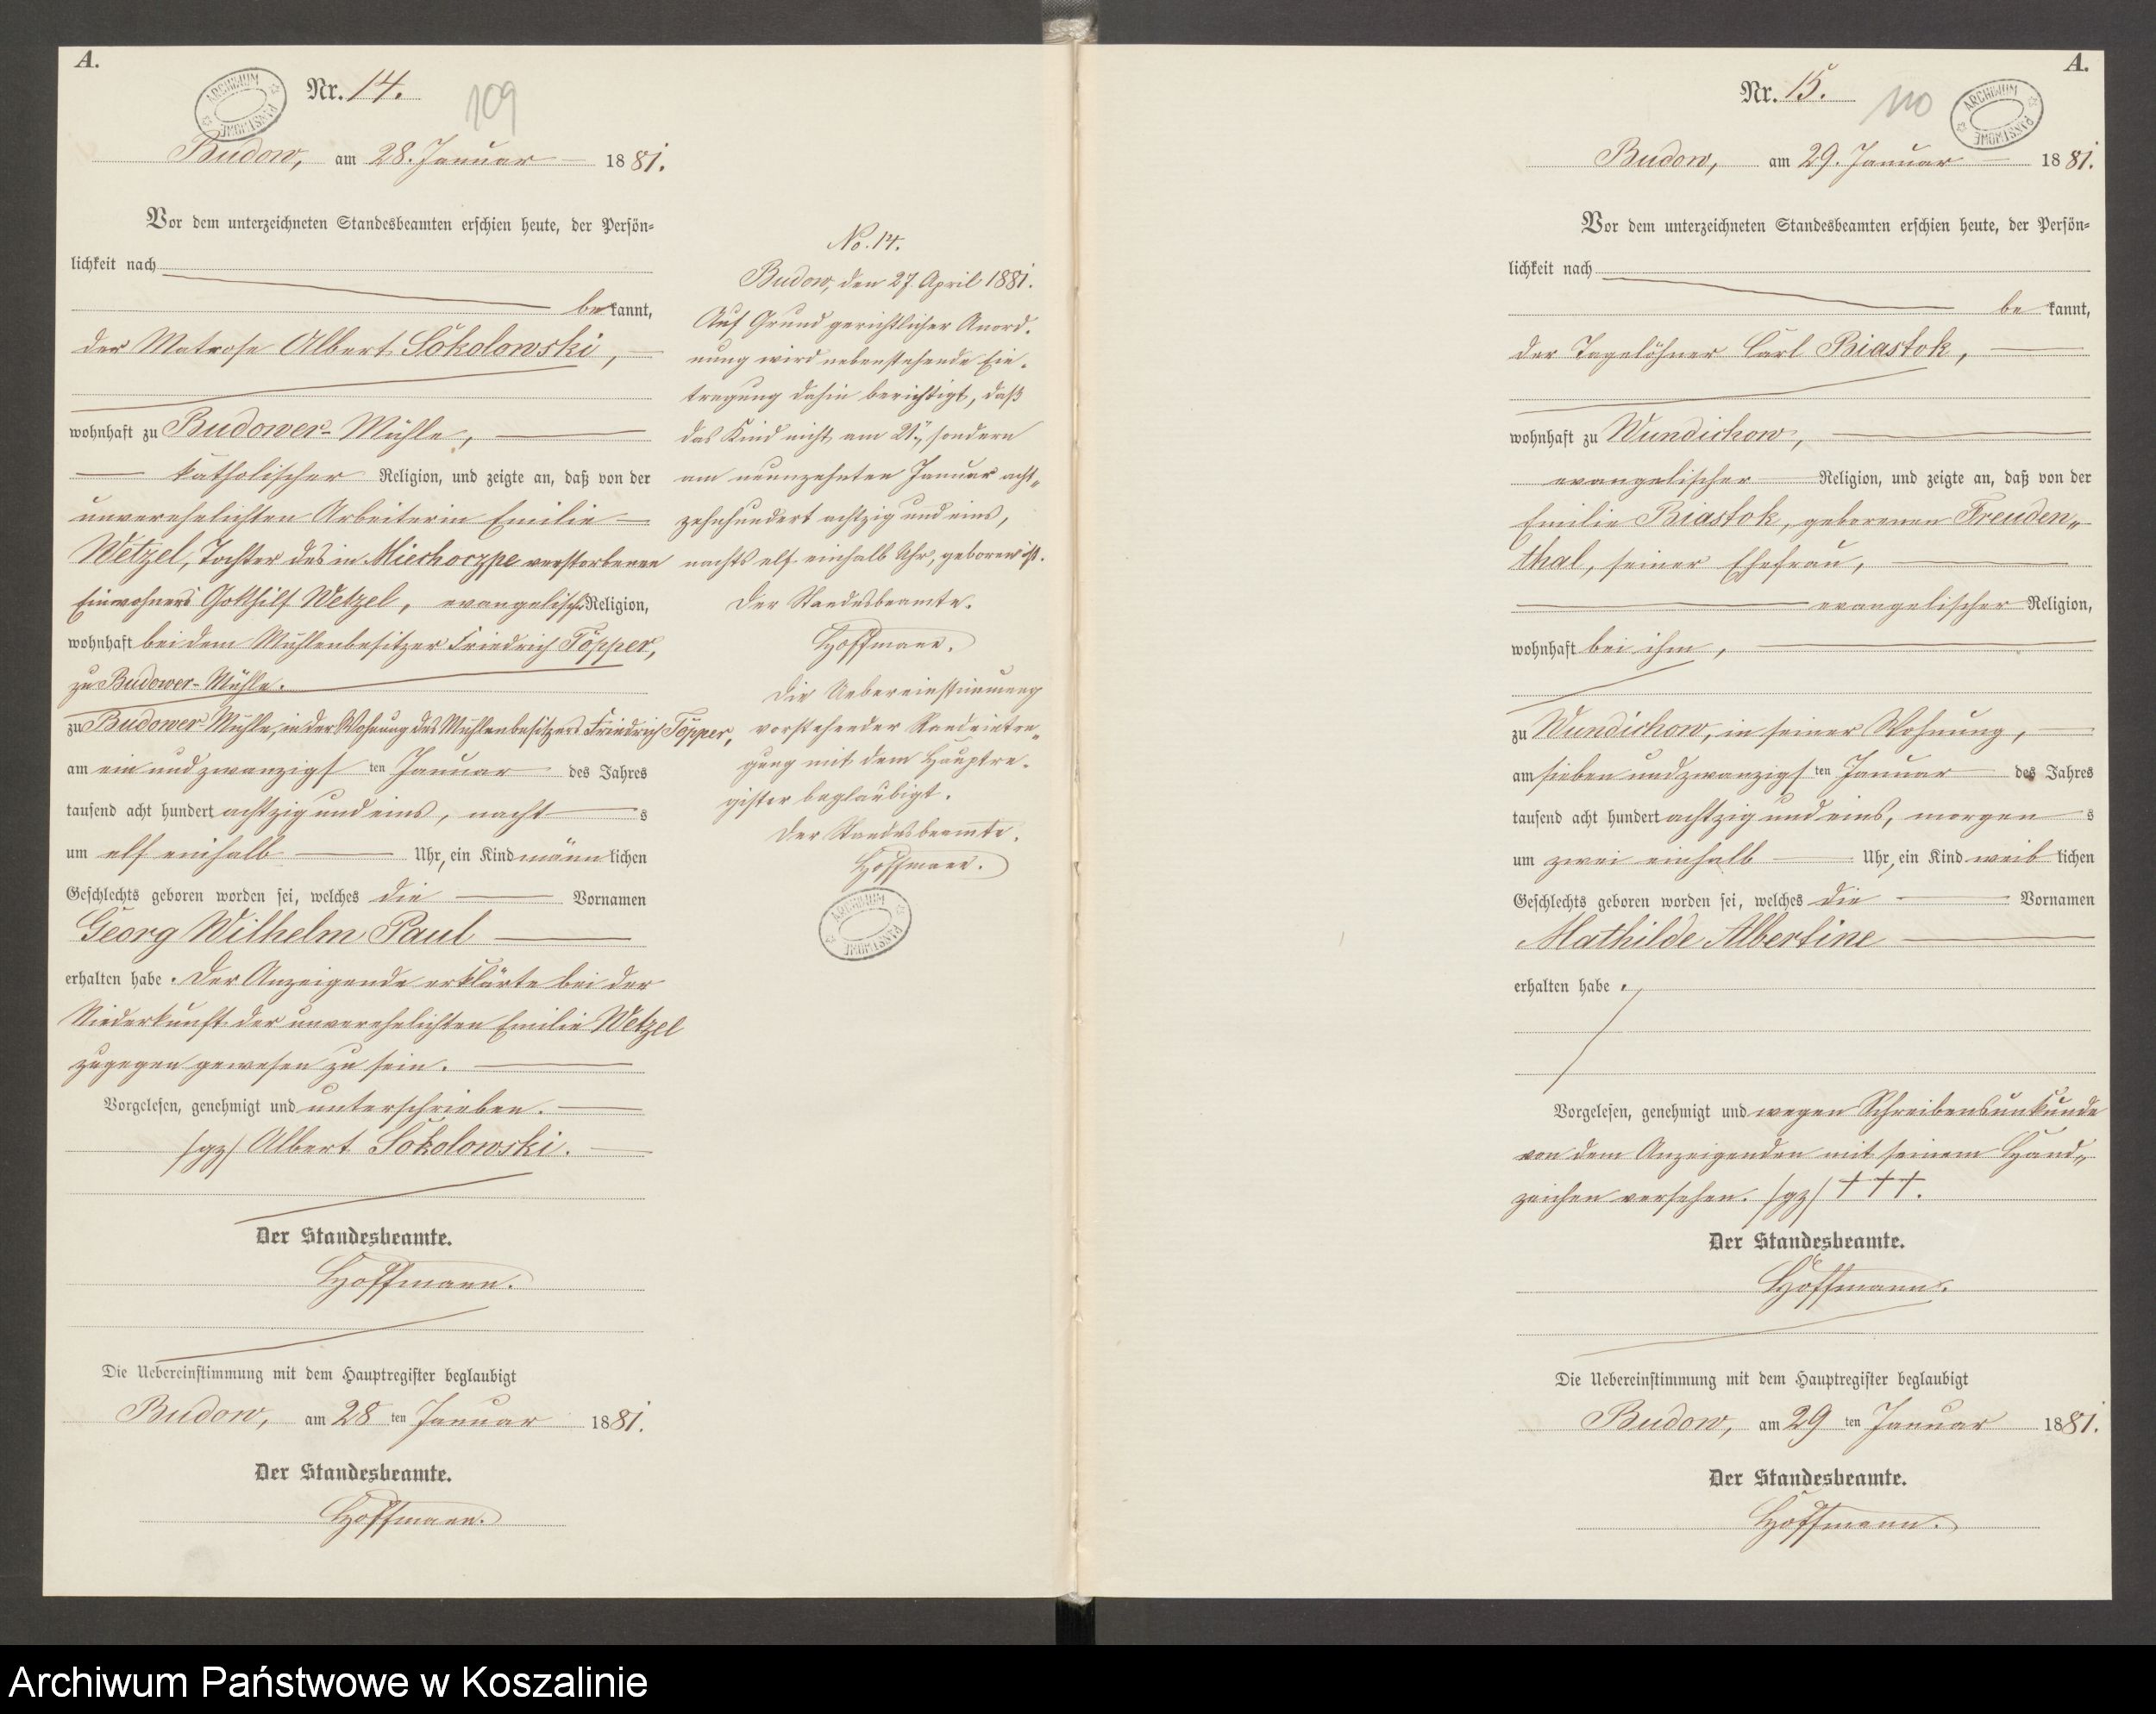 A.
Nr. 14.
109
ARCHIWUM PAŃSTWOWE
Budow, am 28. Januar 1881.
Vor dem unterzeichneten Standesbeamten erschien heute, der Persön-
lichkeit nach
bekannt,
der Matrose Albert Sokolowski,
wohnhaft zu Budower-Mühle,
katholischer Religion, und zeigte an, daß von der
unverehelichten Arbeiterin Emilie
Wetzel, Tochter des in verstorbenen
Einwohners Gotthilf Wetzel, evangelisch Religion,
wohnhaft bei dem Mühlenbesitzer Friedrich Töpper,
zu Budower-Mühle.
zu Budower Mühle, in der Wohnung des Mühlenbesitzers Friedrich Töpper,
am ein und zwanzigsten Januar des Jahres
tausend acht hundert achtzig und eins, nachts
um elf einhalb Uhr, ein Kind männlichen
Geschlechts geboren worden sei, welches die Vornamen
Georg Wilhelm Paul
erhalten habe. Der Anzeigende erklärte bei der
Niederkunft der unverehelichten Emilie Wetzel
zugegen gewesen zu sein.
Vorgelesen, genehmigt und unterschrieben.
/gz/ Albert Sokolowski.
Der Standesbeamte.
Hoffmann.
Die Uebereinstimmung mit dem Hauptregister beglaubigt
Budow, am 28 ten Januar 1881.
Der Standesbeamte.
Hoffmann.
No. 14.
Budow, den 27. April 1881.
Auf Grund gerichtlicher Anord-
nung wird nebenstehende Ein-
tragung dahin berichtigt, daß
das Kind nicht am 21., sondern
am neunzehnten Januar acht-
zehnhundert achtzig und eins,
nachts elf einhalb Uhr, geboren ist.
Der Standesbeamte.
Hoffmann.
Die Uebereinstimmung
vorstehender Randeintra-
gung mit dem Hauptre-
gister beglaubigt.
Der Standesbeamte.
Hoffmann.
ARCHIWUM PAŃSTWOWE
A.
Nr. 15.
110
ARCHIWUM PAŃSTWOWE
Budow, am 29. Januar 1881.
Vor dem unterzeichneten Standesbeamten erschien heute, der Persön-
lichkeit nach
be kannt,
der Tagelöhner Carl Biastok,
wohnhaft zu Wundichow,
evangelischer Religion, und zeigte an, daß von der
Emilie Biastok, geborenen Freuden-
thal, seiner Ehefrau,
evangelischer Religion,
wohnhaft bei ihm,
zu Wundichow, in seiner Wohnung,
am sieben und zwanzigsten Januar des Jahres
tausend acht hundert achtzig und eins, morgens
um zwei einhalb Uhr, ein Kind weiblichen
Geschlechts geboren worden sei, welches die Vornamen
Mathilde Albertine
erhalten habe.
Vorgelesen, genehmigt und wegen Schreibensunkunde
von dem Anzeigenden mit seinem Hand-
zeichen versehen. /gz/ †††.
Der Standesbeamte.
Hoffmann.
Die Uebereinstimmung mit dem Hauptregister beglaubigt
Budow, am 29 ten Januar 1881.
Der Standesbeamte.
Hoffmann.
Archiwum Państwowe w Koszalinie